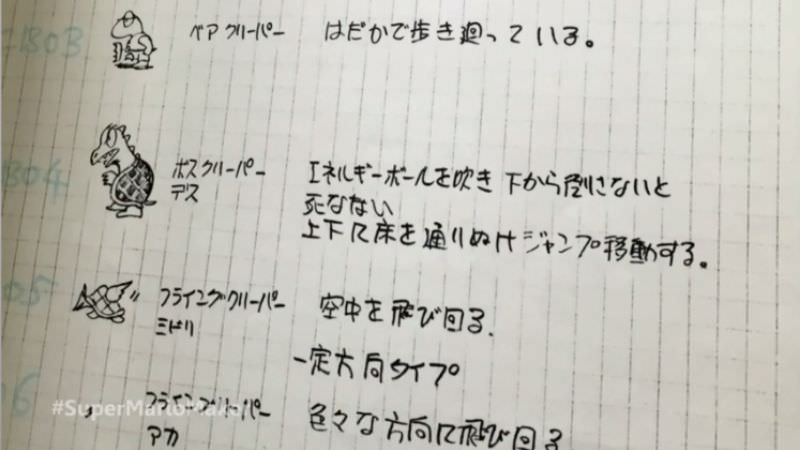 ベアクリーパー はだかで歩き廻っている。
B04
ボスクリーパー エネルギーボールを吹き 下から倒さないと
デス 死なない
上下に床を通りぬけジャンプ移動する。
05
フライングクリーパー 空中を飛び回る.
ミドリ
一定方向タイプ
#SuperMarioMaker
フライングクリーパー 色々な方向に飛び回る
アカ